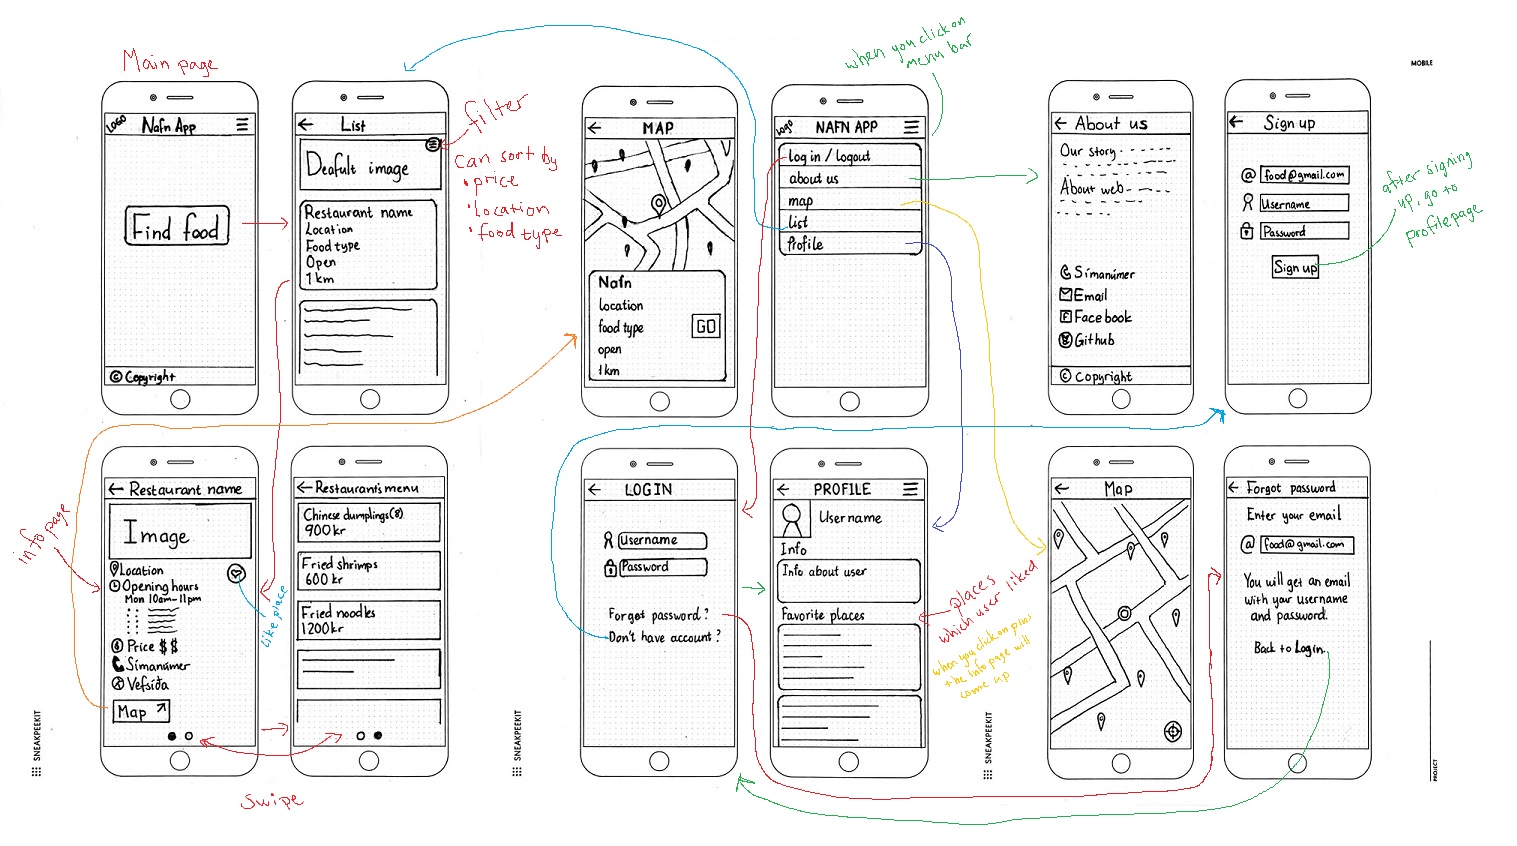 MOBILE
Main page
LOGO Nafn App
Find food
© Copyright
List
Deafult image
Restaurant name
Location
Food type
Open
1 km
filter
Can sort by
• price
• Location
• food type
MAP
Nafn
location
food type
GO
open
1km
when you click on
menu bar
LOGO NAFN APP
log in / logout
about us
map
list
Profile
About us
Our story
About web
Símanúmer
Email
Facebook
Github
© Copyright
Sign up
@ food@gmail.com
Username
Password
Sign up
after signing
up, go to
profile page
info page
Restaurant name
Image
Location
Opening hours
Mon 10am-11pm
Price $$
Símanúmer
Vefsíða
Map
Like place
Swipe
Restaurant's menu
Chinese dumplings(8)
900 kr
Fried shrimps
600 kr
Fried noodles
1200 kr
LOGIN
Username
Password
Forgot password?
Don't have account?
PROFILE
Username
Info
Info about user
Favorite places
places
which user liked
when you click on pins
the info page will
come up
Map
Forgot password
Enter your email
@ food@gmail.com
You will get an email
with your username
and password.
Back to Login.
SNEAKPEEKIT
SNEAKPEEKIT
SNEAKPEEKIT
PROJECT